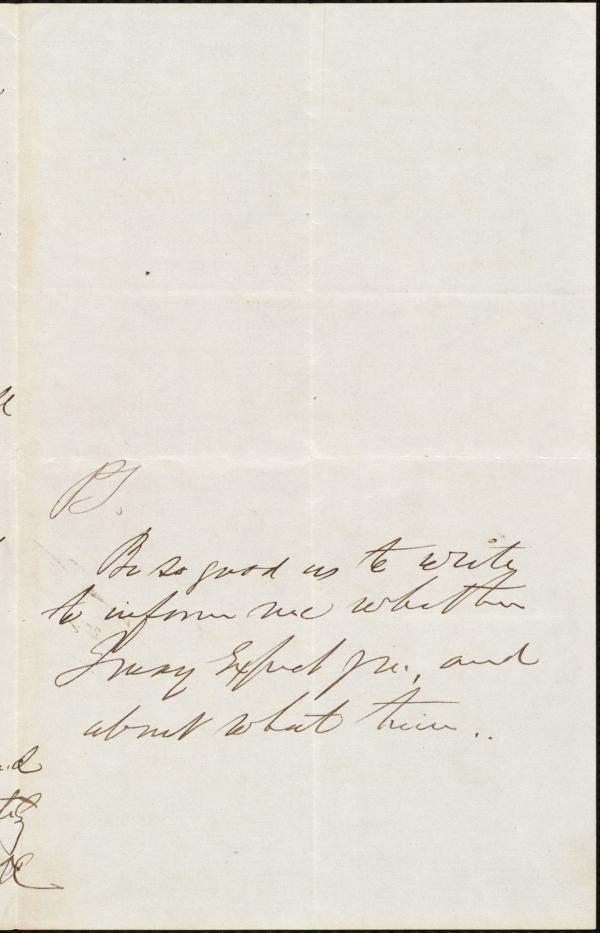 PS.
Be so good as to write
to inform me whether
I may Expect you, and
about what time..